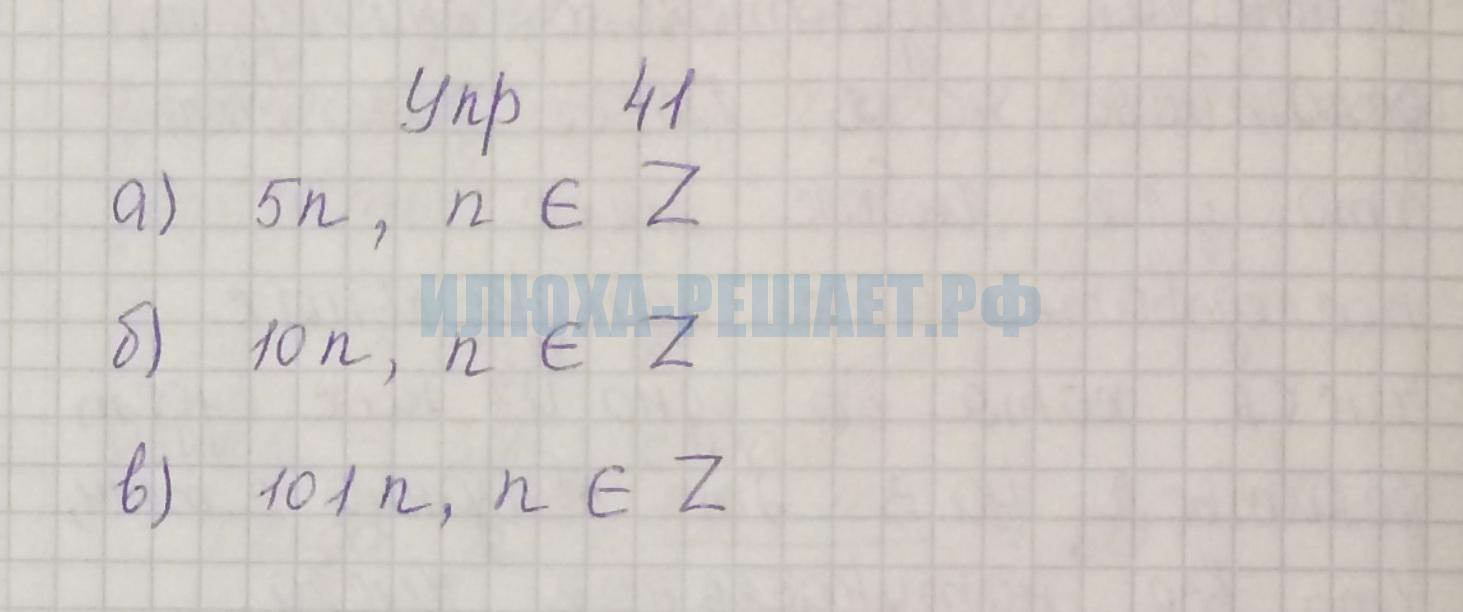 Упр 41
а) 5n, n ∈ Z
ИЛЮХА-РЕШАЕТ.РФ
б) 10n, n ∈ Z
в) 101n, n ∈ Z